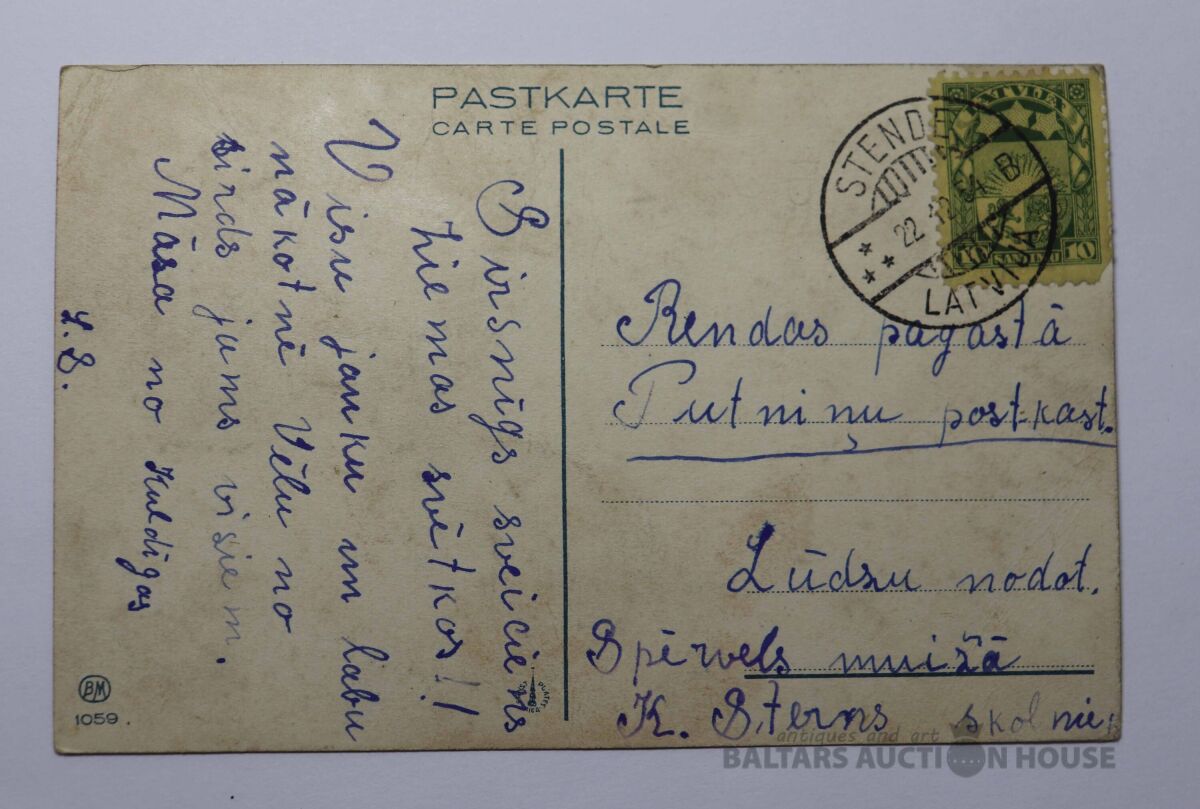 PASTKARTE
CARTE POSTALE
Sirsnīgs sveiciens
Ziemas svētkos!!
Visu jauku un labu
nākotnē Vēlu no
sirds jums visiem.
Māsa no Kuldīgas
L. S.
BM
1059.
STENDE
22 12
B
LATVIJA
LATVIJA
10 10
SANTIMU
Rendas pagastā
Putniņu post-kast.
Lūdzu nodot.
Spērvels muižā
K. Šterns skolnie
antiques and art
BALTARS AUCTION HOUSE